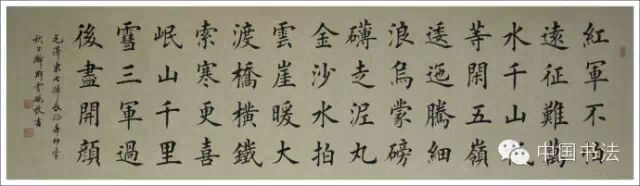 紅軍不怕
遠征難萬
水千山祇
等閑五嶺
逶迤騰細
浪烏蒙磅
礴走泥丸
金沙水拍
雲崖暖大
渡橋橫鐵
索寒更喜
岷山千里
雪三軍過
後盡開顏
毛澤東七律長征
中国书法